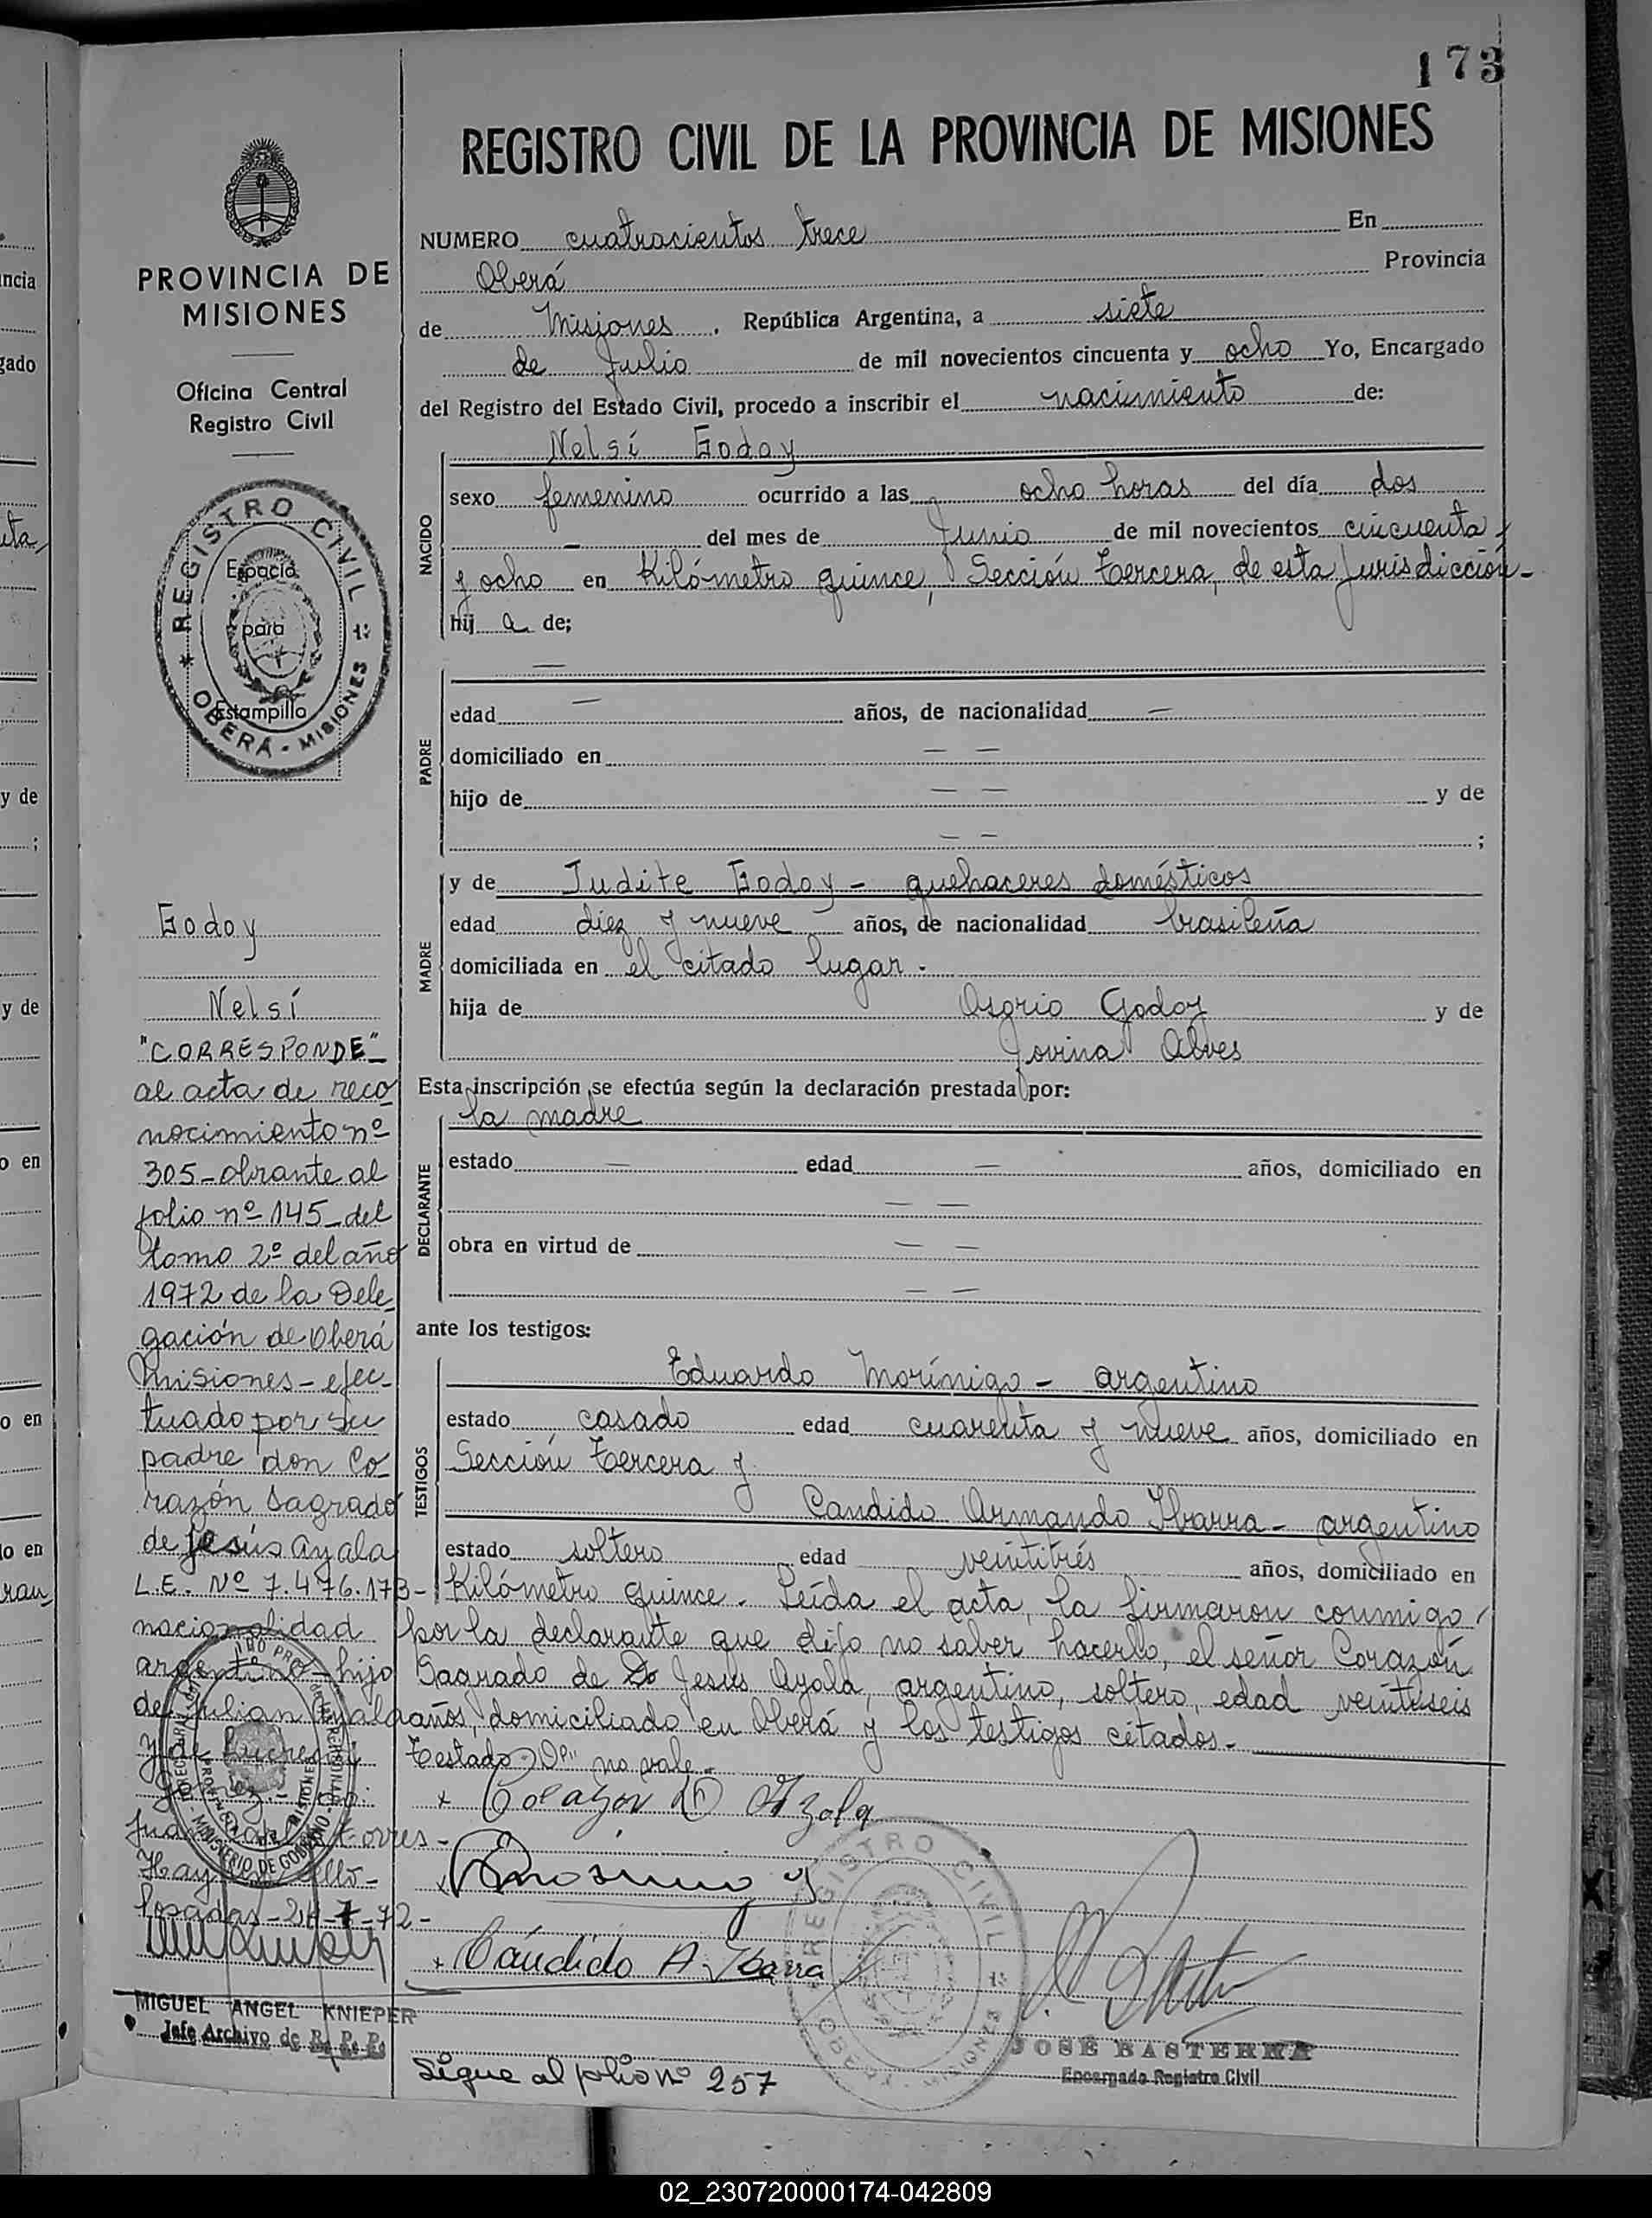 173
REGISTRO CIVIL DE LA PROVINCIA DE MISIONES
NUMERO cuatrocientos trece En
Oberá Provincia
de Misiones, República Argentina, a siete
de Julio de mil novecientos cincuenta y ocho Yo, Encargado
del Registro del Estado Civil, procedo a inscribir el nacimiento de:
NACIDO
Nelsí Godoy
sexo femenino ocurrido a las ocho horas del día dos
del mes de Junio de mil novecientos cincuenta
y ocho en Kilómetro quince, Sección Tercera, de esta Jurisdicción-
hij a de;
PADRE
—
edad — años, de nacionalidad —
domiciliado en — —
hijo de — — y de
— — ;
MADRE
y de Judite Godoy - quehaceres domésticos
edad diez y nueve años, de nacionalidad brasileña
domiciliada en el citado lugar.
hija de Osorio Godoy y de
Jovina Alves
Esta inscripción se efectúa según la declaración prestada por:
DECLARANTE
la madre
estado — edad — años, domiciliado en
— —
obra en virtud de — —
— —
ante los testigos:
TESTIGOS
Eduardo Morínigo - argentino
estado casado edad cuarenta y nueve años, domiciliado en
Sección Tercera y
Candido Armando Ibarra - argentino
estado soltero edad veintitrés años, domiciliado en
Kilómetro quince. Leída el acta, la firmaron conmigo,
por la declarante que dijo no saber hacerlo, el señor Corazón
Sagrado de Do Jesús Ayala, argentino, soltero, edad veintiseis
años, domiciliado en Oberá y los testigos citados.-
Testado: "Do" no vale.-
Cándido A. Ybarra
JOSÉ BASTERRA
Encargado Registro Civil
Sigue al folio nº 257
PROVINCIA DE
MISIONES
Oficina Central
Registro Civil
REGISTRO CIVIL
OBERÁ - MISIONES
Espacio
para
Estampillo
Godoy
Nelsí
"CORRESPONDE"
al acta de reco
nocimiento nº
305-obrante al
folio nº 145-del
tomo 2º del año
1972 de la Dele
gación de Oberá
Misiones-efec-
tuado por su
padre don Co-
razón Sagrado
de Jesús Ayala
L.E. Nº 7.476.173-
nacionalidad
argentino-hijo
de Julian Ayala
y de
Hay un sello-
Posadas-24-7-72-
MIGUEL ANGEL KNIEPER
Jefe Archivo de R. P. P.
REGISTRO CIVIL
OBERÁ - MISIONES
ncia
gado
y de
;
y de
o en
o en
lo en
02_230720000174-042809